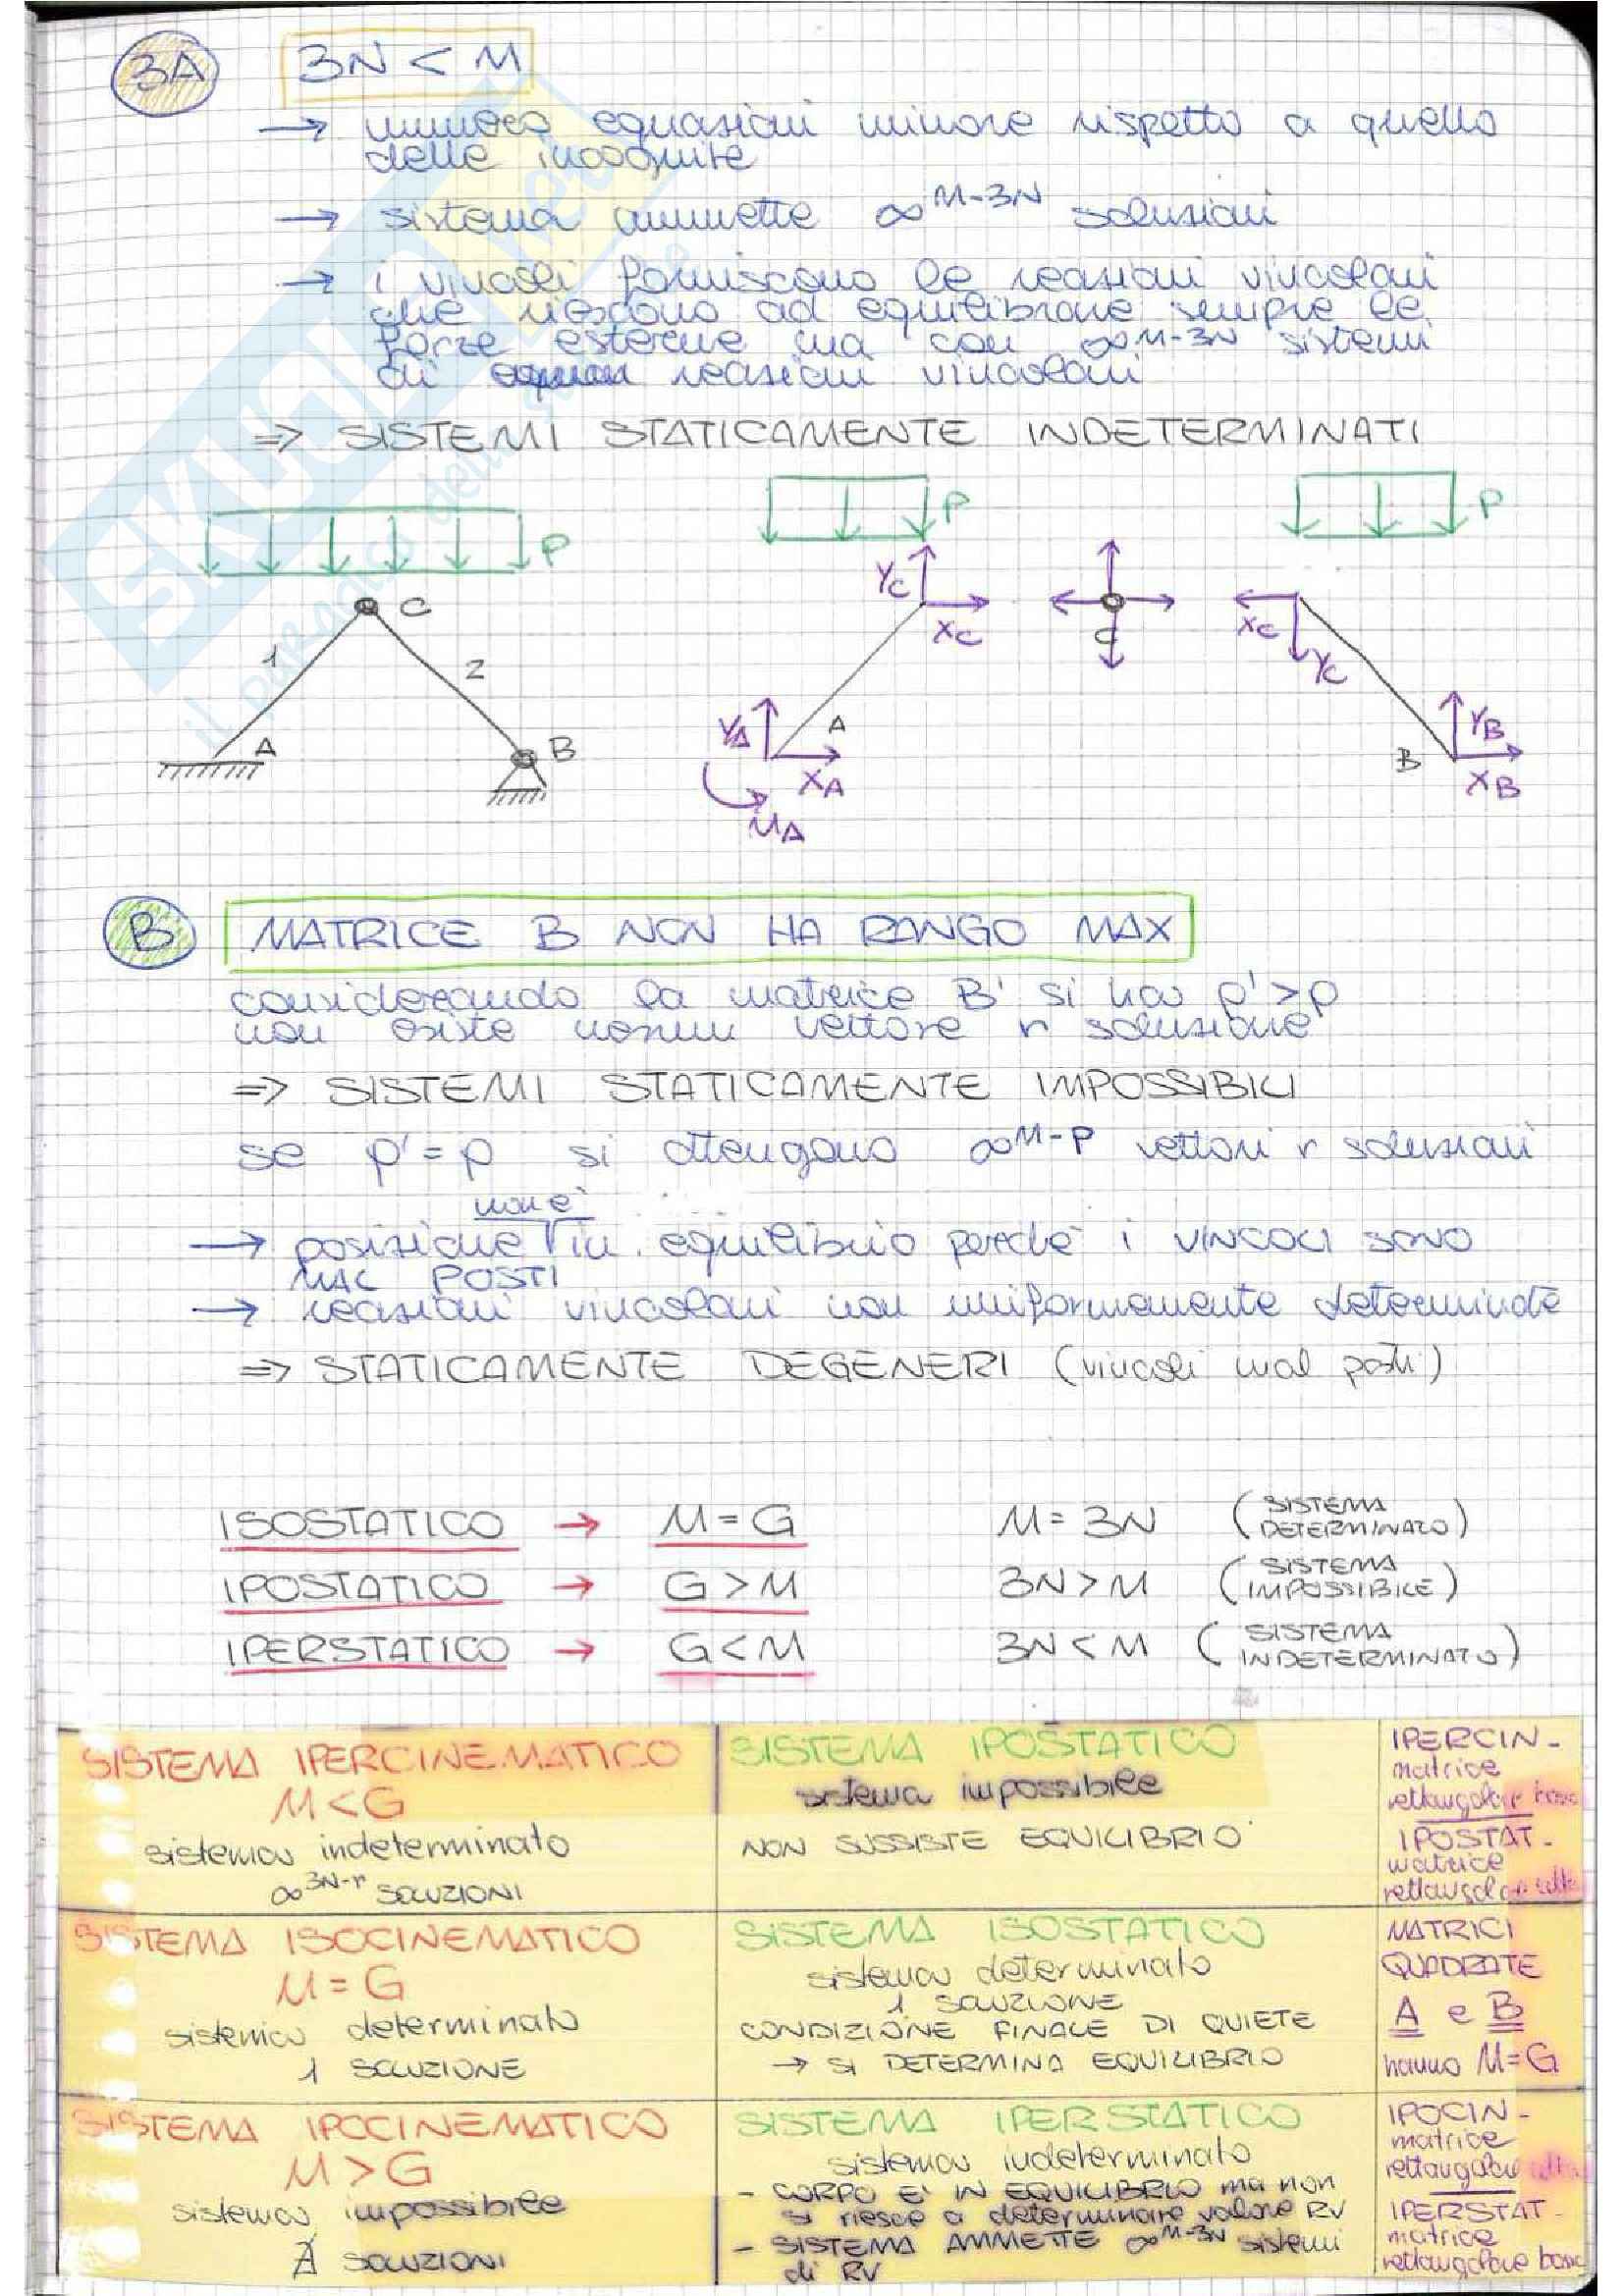 3A 3N < M
→ numero equazioni minore rispetto a quello
delle incognite
→ sistema ammette ∞^M-3N soluzioni
→ i vincoli forniscono le reazioni vincolari
che riescono ad equilibrare sempre le
forze esterne ma con ∞^M-3N sistemi
di reazioni vincolari
⇒ SISTEMI STATICAMENTE INDETERMINATI
P P P
C 1 2 A B
YC XC C XC YC
YA A XA MA
B YB XB
B MATRICE B NON HA RANGO MAX
considerando la matrice B' si ha p'>p
non esiste nessun vettore r soluzione
⇒ SISTEMI STATICAMENTE IMPOSSIBILI
se p'=p si ottengono ∞^M-P vettori r soluzioni
non è
→ posizione in equilibrio perché i VINCOLI SONO
MAL POSTI
→ reazioni vincolari non uniformemente determinate
⇒ STATICAMENTE DEGENERI (vincoli mal posti)
ISOSTATICO → M = G M = 3N (SISTEMA DETERMINATO)
IPOSTATICO → G > M 3N > M (SISTEMA IMPOSSIBILE)
IPERSTATICO → G < M 3N < M (SISTEMA INDETERMINATO)
SISTEMA IPERCINEMATICO
M < G
sistema indeterminato
∞^3N-r SOLUZIONI
SISTEMA IPOSTATICO
sistema impossibile
NON SUSSISTE EQUILIBRIO
IPERCIN-
matrice
rettangolare bassa
IPOSTAT-
matrice
rettangolare
SISTEMA ISOCINEMATICO
M = G
sistema determinato
1 SOLUZIONE
SISTEMA ISOSTATICO
sistema determinato
1 SOLUZIONE
CONDIZIONE FINALE DI QUIETE
→ SI DETERMINA EQUILIBRIO
MATRICI
QUADRATE
A e B
hanno M=G
SISTEMA IPOCINEMATICO
M > G
sistema impossibile
∄ SOLUZIONI
SISTEMA IPERSTATICO
sistema indeterminato
- CORPO E' IN EQUILIBRIO ma non
si riesce a determinare valore RV
- SISTEMA AMMETTE ∞^M-3N sistemi
di RV
IPOCIN-
matrice
rettangolare
IPERSTAT-
matrice
rettangolare bassa